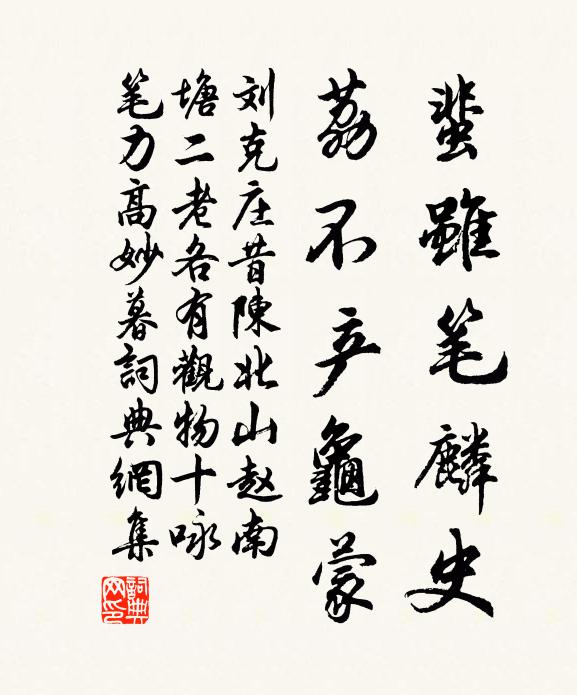 蜚雖笔麟史
荔不产龜蒙
刘克庄昔陳北山赵南
塘二老各有觀物十咏
笔力高妙暮詞典網集
詞典网印